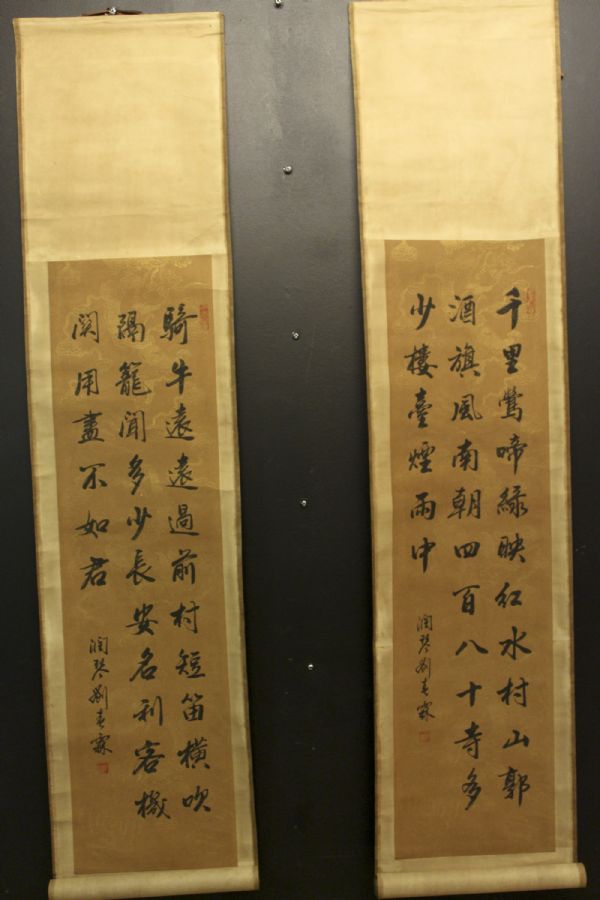 千里鶯啼緑映紅水村山郭
酒旗風南朝四百八十寺多
少樓臺煙雨中
潤琴劉春霖
騎牛遠遠過前村短笛橫吹
隔籠聞多少長安名利客機
関用盡不如君
潤琴劉春霖